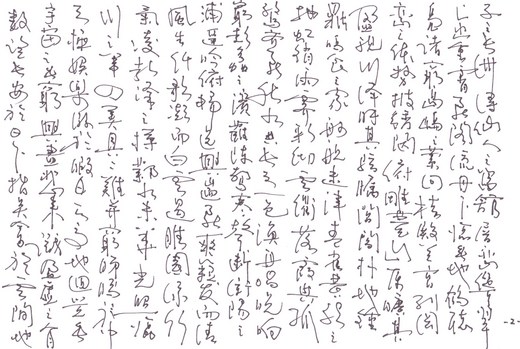 子之長洲得仙人之舊館層巒聳翠
上出重霄飛閣流丹下臨無地鶴汀
鳧渚窮島嶼之縈迴桂殿蘭宮列岡
巒之體勢披繡闥俯雕甍山原曠其
盈視川澤紆其駭矚閭閻撲地鐘
鳴鼎食之家舸艦迷津青雀黃龍之
軸虹銷雨霽彩徹雲衢落霞與孤
鶩齊飛秋水共長天一色漁舟唱晚響
窮彭蠡之濱雁陣驚寒聲斷衡陽之
浦遙吟俯暢逸興遄飛爽籟發而清
風生纖歌凝而白雲遏睢園綠竹
氣凌彭澤之樽鄴水朱華光照臨
川之筆四美具二難并窮睇眄於中
天極娛遊於暇日天高地迥覺
宇宙之無窮興盡悲來識盈虛之有
數望長安於日下指吳會於雲間地
-2-